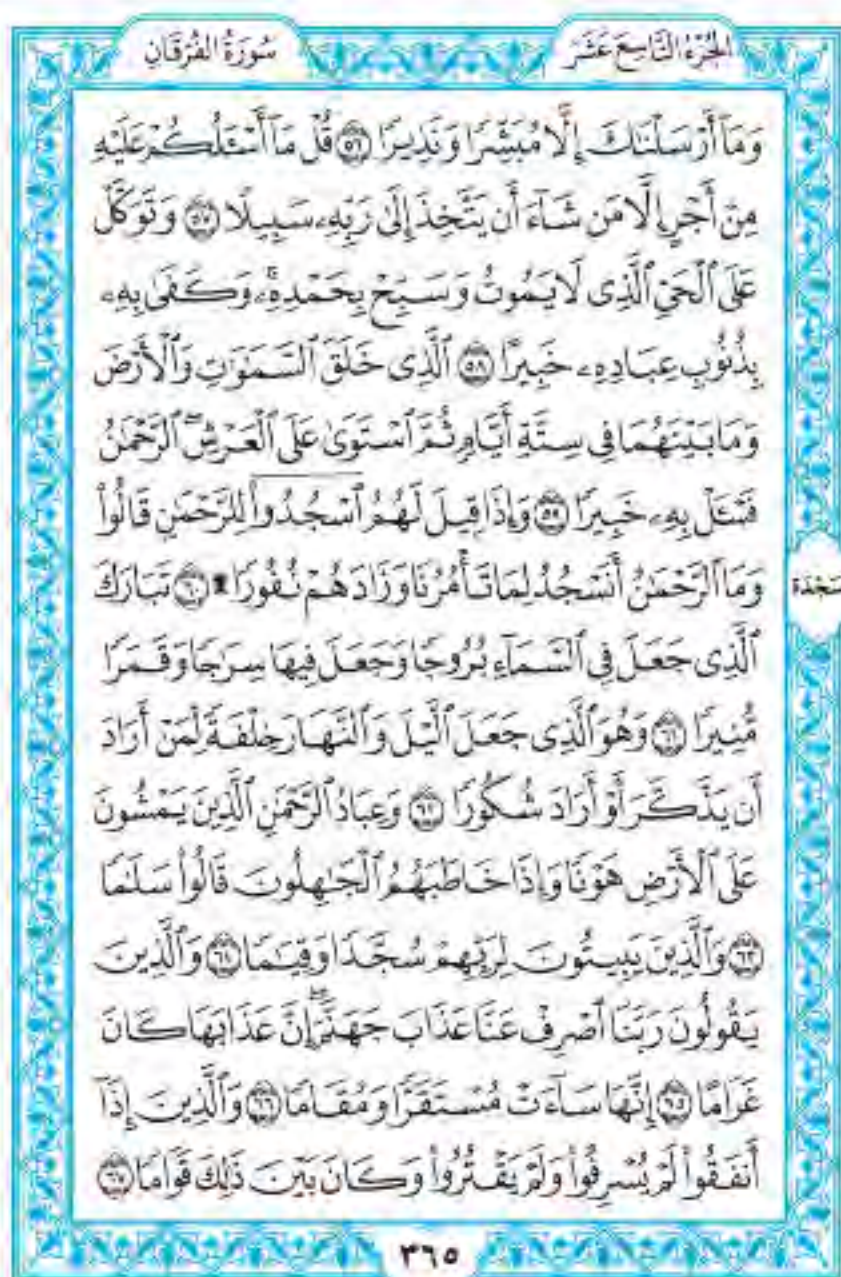 الجزء التاسع عشر
سورة الفرقان
وَمَآ أَرۡسَلۡنَٰكَ إِلَّا مُبَشِّرٗا وَنَذِيرٗا ٥٦ قُلۡ مَآ أَسۡـَٔلُكُمۡ عَلَيۡهِ
مِنۡ أَجۡرٍ إِلَّا مَن شَآءَ أَن يَتَّخِذَ إِلَىٰ رَبِّهِۦ سَبِيلٗا ٥٧ وَتَوَكَّلۡ
عَلَى ٱلۡحَيِّ ٱلَّذِي لَا يَمُوتُ وَسَبِّحۡ بِحَمۡدِهِۦۚ وَكَفَىٰ بِهِۦ
بِذُنُوبِ عِبَادِهِۦ خَبِيرًا ٥٨ ٱلَّذِي خَلَقَ ٱلسَّمَٰوَٰتِ وَٱلۡأَرۡضَ
وَمَا بَيۡنَهُمَا فِي سِتَّةِ أَيَّامٖ ثُمَّ ٱسۡتَوَىٰ عَلَى ٱلۡعَرۡشِۖ ٱلرَّحۡمَٰنُ
فَسۡـَٔلۡ بِهِۦ خَبِيرٗا ٥٩ وَإِذَا قِيلَ لَهُمُ ٱسۡجُدُواْۤ لِلرَّحۡمَٰنِ قَالُواْ
وَمَا ٱلرَّحۡمَٰنُ أَنَسۡجُدُ لِمَا تَأۡمُرُنَا وَزَادَهُمۡ نُفُورٗا۩ ٦٠ تَبَارَكَ
سجدة
ٱلَّذِي جَعَلَ فِي ٱلسَّمَآءِ بُرُوجٗا وَجَعَلَ فِيهَا سِرَٰجٗا وَقَمَرٗا
مُّنِيرٗا ٦١ وَهُوَ ٱلَّذِي جَعَلَ ٱلَّيۡلَ وَٱلنَّهَارَ خِلۡفَةٗ لِّمَنۡ أَرَادَ
أَن يَذَّكَّرَ أَوۡ أَرَادَ شُكُورٗا ٦٢ وَعِبَادُ ٱلرَّحۡمَٰنِ ٱلَّذِينَ يَمۡشُونَ
عَلَى ٱلۡأَرۡضِ هَوۡنٗا وَإِذَا خَاطَبَهُمُ ٱلۡجَٰهِلُونَ قَالُواْ سَلَٰمٗا
٦٣ وَٱلَّذِينَ يَبِيتُونَ لِرَبِّهِمۡ سُجَّدٗا وَقِيَٰمٗا ٦٤ وَٱلَّذِينَ
يَقُولُونَ رَبَّنَا ٱصۡرِفۡ عَنَّا عَذَابَ جَهَنَّمَۖ إِنَّ عَذَابَهَا كَانَ
غَرَامًا ٦٥ إِنَّهَا سَآءَتۡ مُسۡتَقَرّٗا وَمُقَامٗا ٦٦ وَٱلَّذِينَ إِذَآ
أَنفَقُواْ لَمۡ يُسۡرِفُواْ وَلَمۡ يَقۡتُرُواْ وَكَانَ بَيۡنَ ذَٰلِكَ قَوَامٗا ٦٧
٣٦٥